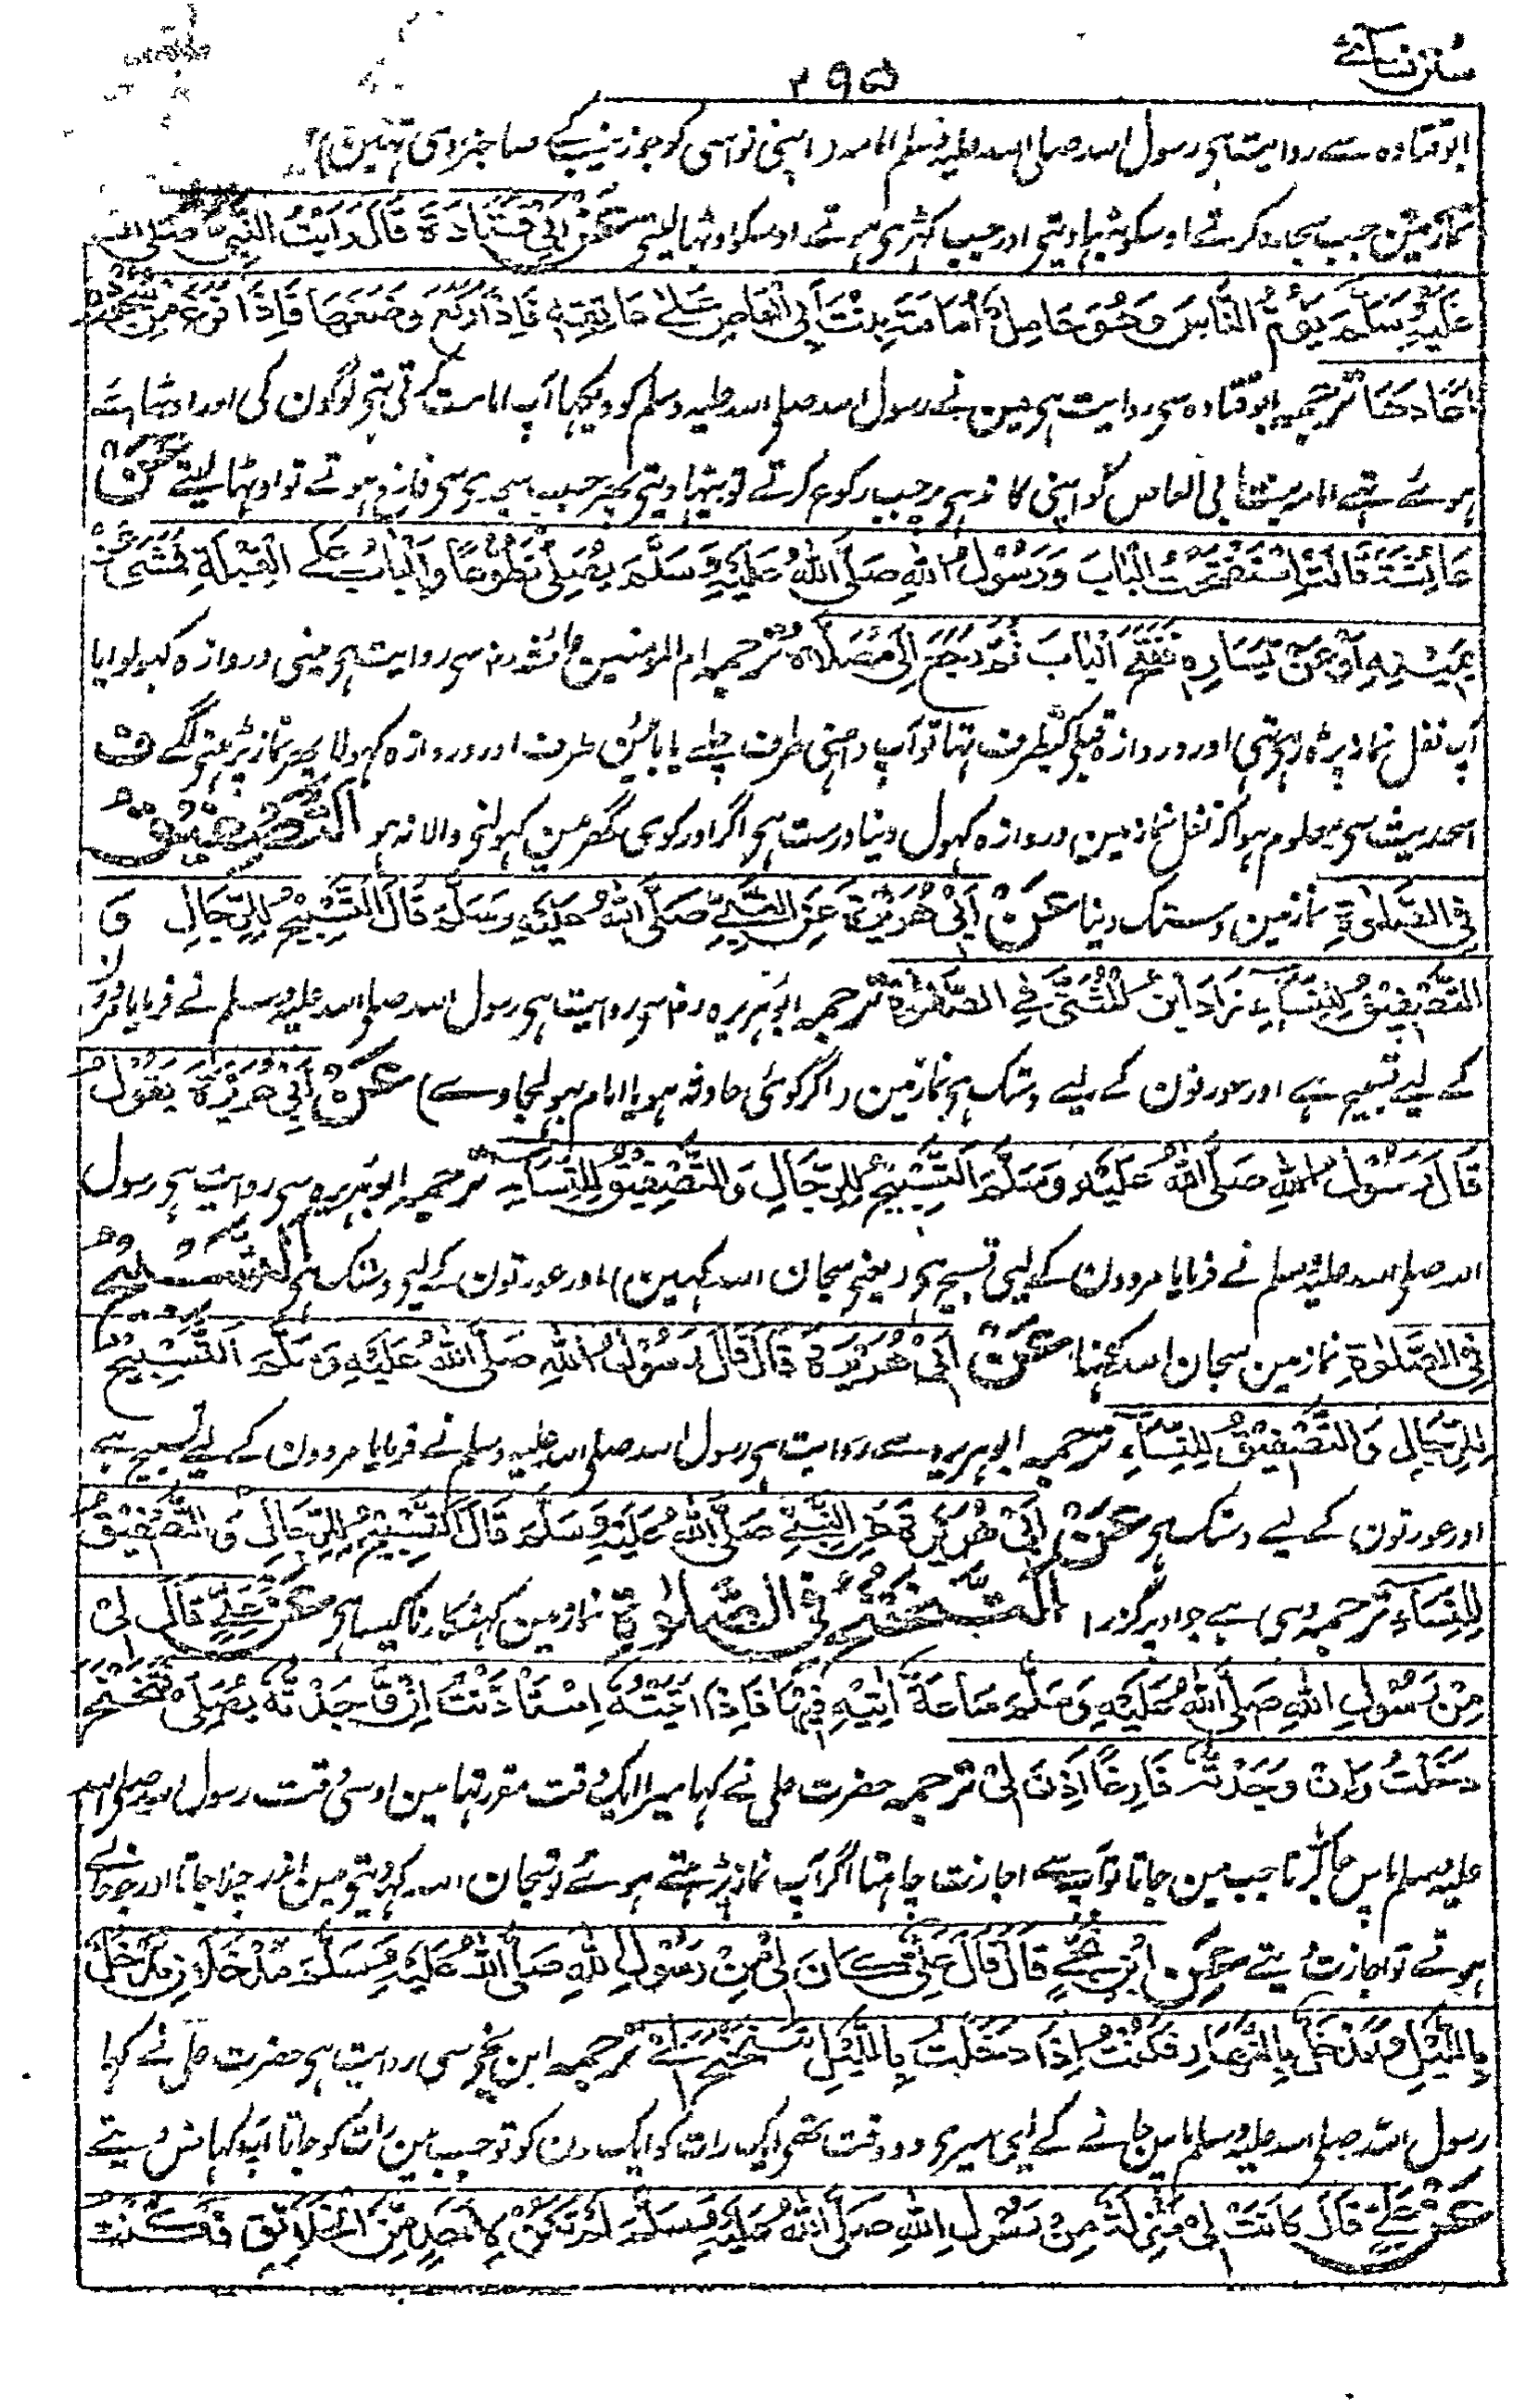 سنن نسائے
۲۹۵
ابوقتادہ سے روایت ہی رسول اسد صلی اسد علیہ وسلم امامہ (اپنی نواسی کو جو زینب کے صاحبزادی تہین)
نماز مین جب سجدہ کرتے اوسکو بٹہا دیتی اور جب کہڑی ہوتے اوسکو اوٹہا لیتی عَنْ اَبِیْ قَتَادَةَ قَالَ رَاَیْتُ النَّبِیَّ صَلَّی اللہُ
عَلَیْہِ وَسَلَّمَ یَؤُمُّ النَّاسَ وَھُوَ حَامِلٌ اُمَامَةَ بِنْتَ اَبِی الْعَاصِ عَلٰے عَاتِقِہٖ فَاِذَا رَکَعَ وَضَعَھَا فَاِذَا فَرَغَ مِنْ سُجُوْدِہٖ
اَعَادَھَا ترجمہ ابوقتادہ سی روایت ہی مین نے رسول اسد صلی اسد علیہ وسلم کو دیکہا آپ امامت کرتی تہی لوگون کی اور اوٹھائے
ہوئے تہے امامہ بنت ابی العاص کو اپنی کاندہی پر جب رکوع کرتے تو بٹہا دیتی پھر جب سجدی سی فارغ ہوتے تو اوٹہا لیتے عَنْ
عَائِشَةَ قَالَتْ اسْتَفْتَحْتُ الْبَابَ وَرَسُوْلُ اللہِ صَلَّی اللہُ عَلَیْہِ وَسَلَّمَ یُصَلِّیْ تَطَوُّعًا وَالْبَابُ عَلَے الْقِبْلَةِ فَمَشٰی عَنْ
یَمِیْنِہٖ اَوْ عَنْ یَسَارِہٖ فَفَتَحَ الْبَابَ ثُمَّ رَجَعَ اِلٰی مُصَلَّاہُ ترجمہ ام المومنین عائشہ رض سی روایت ہی مینی دروازہ کہولوایا
آپ نفل نماز پڑہ رہی تہی اور دروازہ قبلی کیطرف تہا تو آپ داہنی طرف چلے یا بائین طرف اور دروازہ کہولا پھر نماز پڑہنی لگے ف
اسحدیث سی معلوم ہوا کہ نفل نماز مین دروازہ کہول دینا درست ہی اگر اور کوی گھر مین کہولنی والا نہ ہو اَلتَّصْفِیْقُ
فِی الصَّلٰوةِ نماز مین دستک دینا عَنْ اَبِیْ ھُرَیْرَةَ عَنِ النَّبِیِّ صَلَّی اللہُ عَلَیْہِ وَسَلَّمَ قَالَ التَّسْبِیْحُ لِلرِّجَالِ وَ
التَّصْفِیْقُ لِلنِّسَاءِ زَادَ ابْنُ الْمُثَنّٰی فِی الصَّلٰوةِ ترجمہ ابوہریرہ رض سی روایت ہی رسول اسد صلی اسد علیہ وسلم نے فرمایا مردون
کے لیے تسبیح ہے اور عورتون کے لیے دستک ہی نماز مین (اگر کوئی حادثہ ہو یا امام بہولجاوے) عَنْ اَبِیْ ھُرَیْرَةَ یَقُوْلُ
قَالَ رَسُوْلُ اللہِ صَلَّی اللہُ عَلَیْہِ وَسَلَّمَ اَلتَّسْبِیْحُ لِلرِّجَالِ وَالتَّصْفِیْقُ لِلنِّسَاءِ ترجمہ ابوہریرہ سی روایت ہی رسول
اسد صلی اسد علیہ وسلم نے فرمایا مردون کے لیی تسبیح ہی (یعنی سبحان اسد کہین) اور عورتون کے لیی دستک ہی اَلتَّسْبِیْحُ
فِی الصَّلٰوةِ نماز مین سبحان اسد کہنا عَنْ اَبِیْ ھُرَیْرَةَ قَالَ قَالَ رَسُوْلُ اللہِ صَلَّی اللہُ عَلَیْہِ وَسَلَّمَ اَلتَّسْبِیْحُ
لِلرِّجَالِ وَالتَّصْفِیْقُ لِلنِّسَاءِ ترجمہ ابوہریرہ سے روایت ہی رسول اسد صلی اسد علیہ وسلم نے فرمایا مردون کے لیے تسبیح ہے
اور عورتون کے لیے دستک ہی عَنْ اَبِیْ ھُرَیْرَةَ عَنِ النَّبِیِّ صَلَّی اللہُ عَلَیْہِ وَسَلَّمَ قَالَ التَّسْبِیْحُ لِلرِّجَالِ وَالتَّصْفِیْقُ
لِلنِّسَاءِ ترجمہ وہی ہے جو اوپر گذرا اَلتَّنَحْنُحُ فِی الصَّلٰوةِ نماز مین کہنکارنا کیسا ہی عَنْ عَلِیٍّ قَالَ لِیْ
مِنْ رَسُوْلِ اللہِ صَلَّی اللہُ عَلَیْہِ وَسَلَّمَ سَاعَةٌ اٰتِیْہِ فِیْھَا فَاِذَا اَتَیْتُہُ اسْتَاْذَنْتُ اِنْ وَجَدْتُّہُ یُصَلِّیْ تَنَحْنَحَ
دَخَلْتُ وَاِنْ وَجَدْتُّہُ فَارِغًا اَذِنَ لِیْ ترجمہ حضرت علی نے کہا میرا ایک وقت مقرر تہا مین اوسی وقت رسول اسد صلی اسد
علیہ وسلم پاس جایا کرتا جب مین جاتا تو آپسے اجازت چاہتا اگر آپ نماز پڑہتے ہوئے تو سبحان اسد کہدیتی مین اندر چلا جاتا اور جو خالے
ہوتے تو اجازت دیتے عَنِ ابْنِ نُجَیٍّ قَالَ قَالَ عَلِیٌّ کَانَ لِیْ مِنْ رَسُوْلِ اللہِ صَلَّی اللہُ عَلَیْہِ وَسَلَّمَ مَدْخَلَانِ مَدْخَلٌ
بِاللَّیْلِ وَمَدْخَلٌ بِالنَّھَارِ فَکُنْتُ اِذَا دَخَلْتُ بِاللَّیْلِ تَنَحْنَحَ لِیْ ترجمہ ابن نجی سی روایت ہی حضرت علی نے کہا
رسول اسد صلی اسد علیہ وسلم پاس جانے کے لیی میری دو وقت تہی ایک رات کو ایک دن کو تو جب مین رات کو جاتا آپ کہانس دیتے
عَنْ عَلِیٍّ قَالَ کَانَتْ لِیْ مَنْزِلَةٌ مِنْ رَسُوْلِ اللہِ صَلَّی اللہُ عَلَیْہِ وَسَلَّمَ لَمْ تَکُنْ لِاَحَدٍ مِّنَ الْخَلَائِقِ فَکُنْتُ